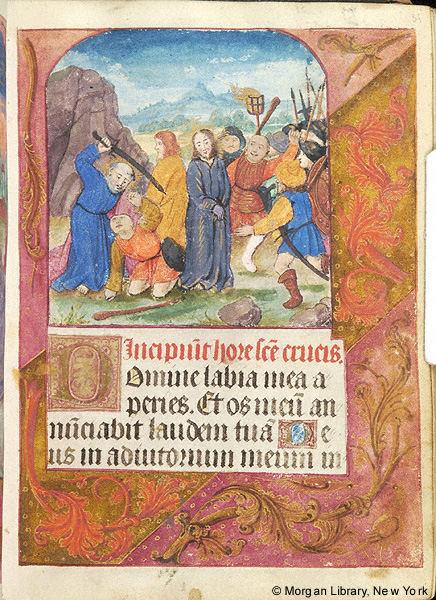 Incipiu͂t hore sc͂e crucis.
Domine labia mea a
peries. Et os meu͂ an
nu͂ciabit laudem tua͂ De
us in adiutorium meum in
© Morgan Library, New York